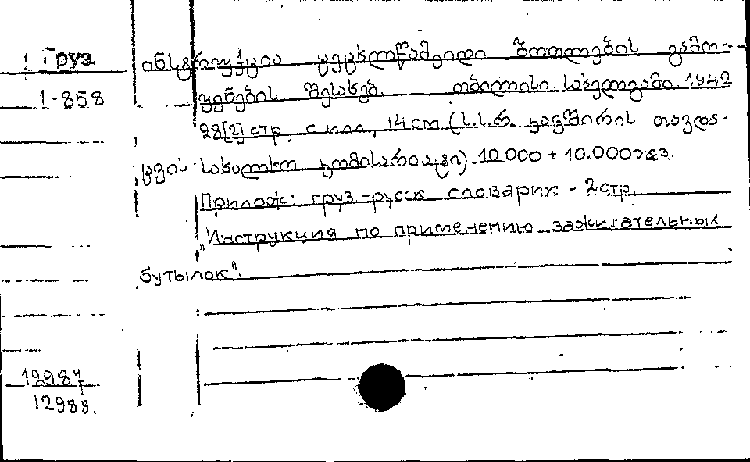 Груз
1-858
ინსტრუქცია ცეცხლწამკიდი ბოთლების გამო-
ყენების შესახებ. თბილისი. საბლიტგამი. 1942
28[2] стр. с илл., 14 см. (ს.ს.რ. კავშირის თავდა-
ცვის სახალხო კომისარიატი). 10.000 + 10.000 экз.
Прилож: груз-русск словарик - 2 стр.
"Инструкция по применению зажигательных
бутылок".
12987
12988.